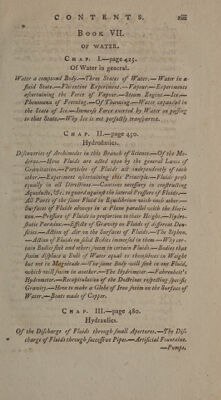 CONTENTS. xiii
BOOK VII.
OF WATER.
CHAP. I.—page 425.
Of Water in general.
Water a compound Body.—Three States of Water.—Water in a
fluid State.—Florentine Experiment.—Vapour—Experiments
ascertaining the Force of Vapour.—Steam Engine.—Ice.—
Phenomena of Freezing.—Of Thawing.—Water expanded in
the State of Ice.—Immense Force exerted by Water on passing
to that State.—Why Ice is not perfectly transparent.
CHAP. II.—page 450.
Hydrostatics.
Discoveries of Archimedes in this Branch of Science.—Of the Mo-
derns.—How Fluids are acted upon by the general Laws of
Gravitation.—Particles of Fluids act independently of each
other.—Experiment ascertaining this Principle.—Fluids press
equally in all Directions.—Cautions necessary in constructing
Aqueducts, &c. to guard against the lateral Pressure of Fluids.—
All Parts of the same Fluid in Equilibrium with each other.—
Surfaces of Fluids always in a Plane parallel with the Hori-
zon.—Pressure of Fluids in proportion to their Height.—Hydro-
static Paradox.—Effects of Gravity on Fluids of different Den-
sities.—Action of Air on the Surfaces of Fluids.—The Syphon.
—Action of Fluids on solid Bodies immersed in them.—Why cer-
tain Bodies sink and others swim in certain Fluids.—Bodies that
swim displace a Bulk of Water equal to themselves in Weight
but not in Magnitude.—The same Body will sink in one Fluid,
which will swim in another.—The Hydrometer.—Fahrenheit's
Hydrometer.—Recapitulation of the Doctrines respecting specific
Gravity.—How to make a Globe of Iron swim on the Surface of
Water.—Boats made of Copper.
CHAP. III.—page 480.
Hydraulics.
Of the Discharge of Fluids through small Apertures.—The Dis-
charge of Fluids through successive Pipes.—Artificial Fountains.
—Pumps.